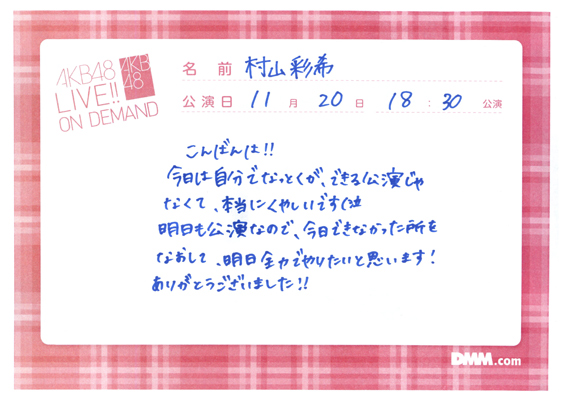 AKB48
LIVE!!
ON DEMAND
AKB
48
名前 村山彩希
公演日 11月20日 18:30公演
こんばんは!!
今日は自分でなっとくが、できる公演じゃ
なくて、本当にくやしいです(泣
明日も公演なので、今日できなかった所を
なおして、明日全力でやりたいと思います!
ありがとうございました!!
DMM.com